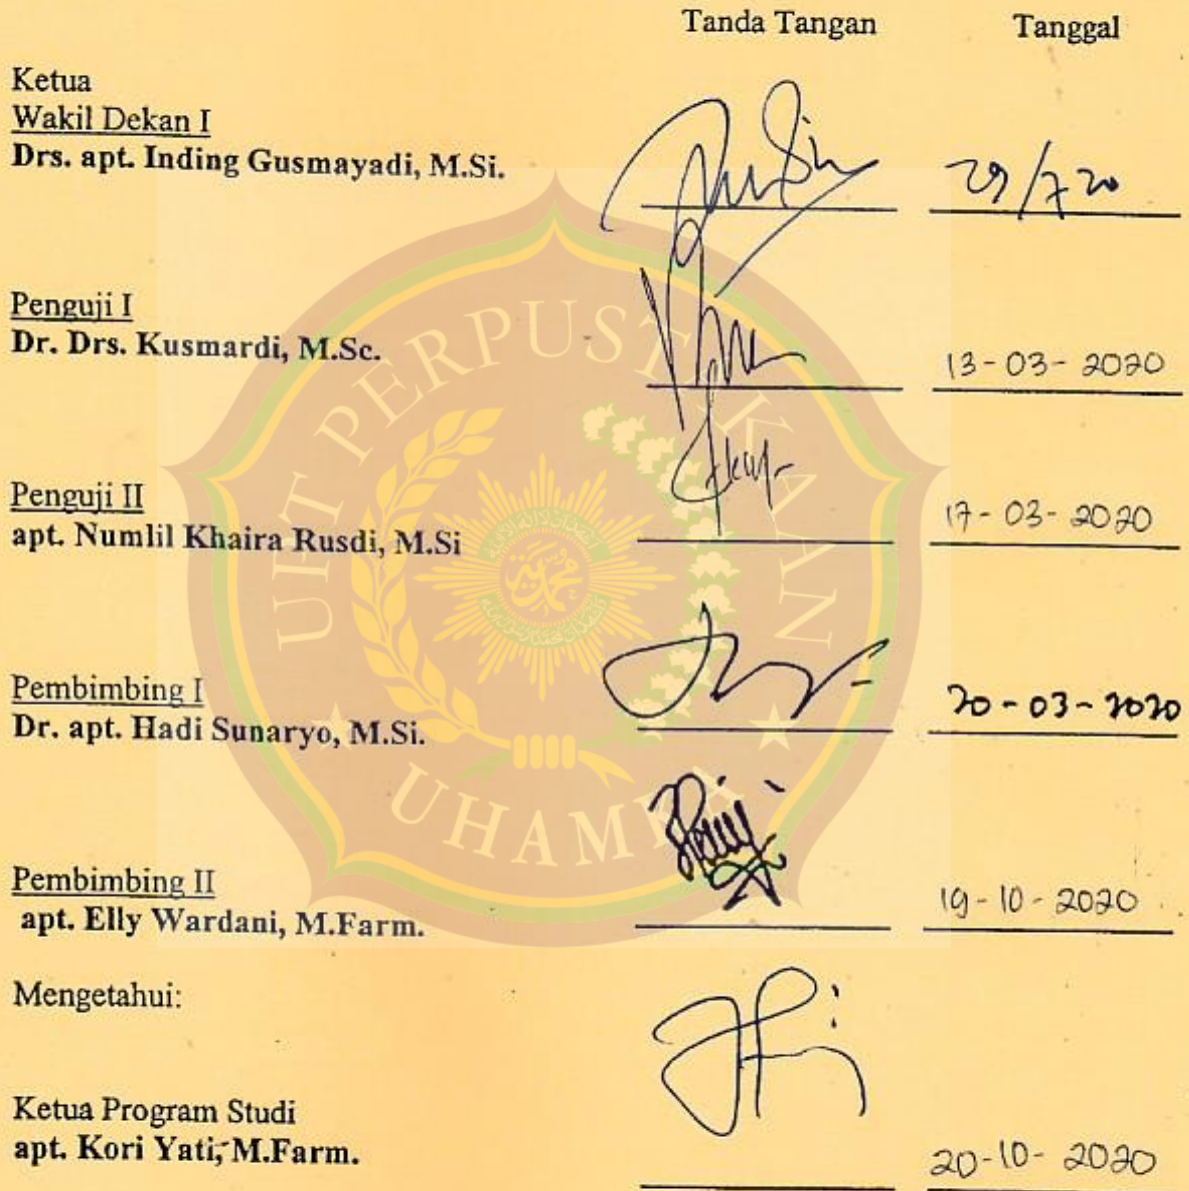 Tanda Tangan Tanggal
Ketua
Wakil Dekan I
Drs. apt. Inding Gusmayadi, M.Si. 29/7 20
Penguji I
Dr. Drs. Kusmardi, M.Sc. 13-03-2020
Penguji II
apt. Numlil Khaira Rusdi, M.Si 17-03-2020
Pembimbing I
Dr. apt. Hadi Sunaryo, M.Si. 20-03-2020
Pembimbing II
apt. Elly Wardani, M.Farm. 19-10-2020
Mengetahui:
Ketua Program Studi
apt. Kori Yati, M.Farm. 20-10-2020
UPT PERPUSTAKAAN
UHAMKA